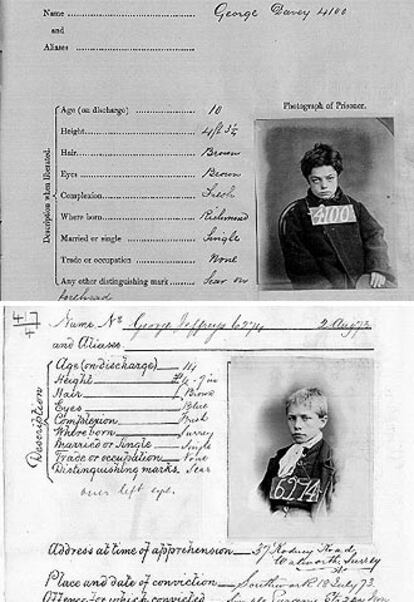 Name George Davey 4100
and
Aliases
Description when liberated.
Age (on discharge) 10
Height 4ft 3½
Hair Brown
Eyes Brown
Complexion Fresh
Where born Richmond
Married or single Single
Trade or occupation None
Any other distinguishing mark Scar on
forehead
Photograph of Prisoner.
4100
417
4
Name, No George Jeffreys 6274 2 Aug 73
and Aliases
Description
Age (on discharge) 14
Height
Hair Brown
Eyes Blue
Complexion Fresh
Where born Surrey
Married or Single Single
Trade or occupation None
Distinguishing marks Scar
over left eye.
6274
Address at time of apprehension 37 Rodney Road,
Walworth, Surrey
Place and date of conviction Southwark 18 July 73.
Offence for which convicted